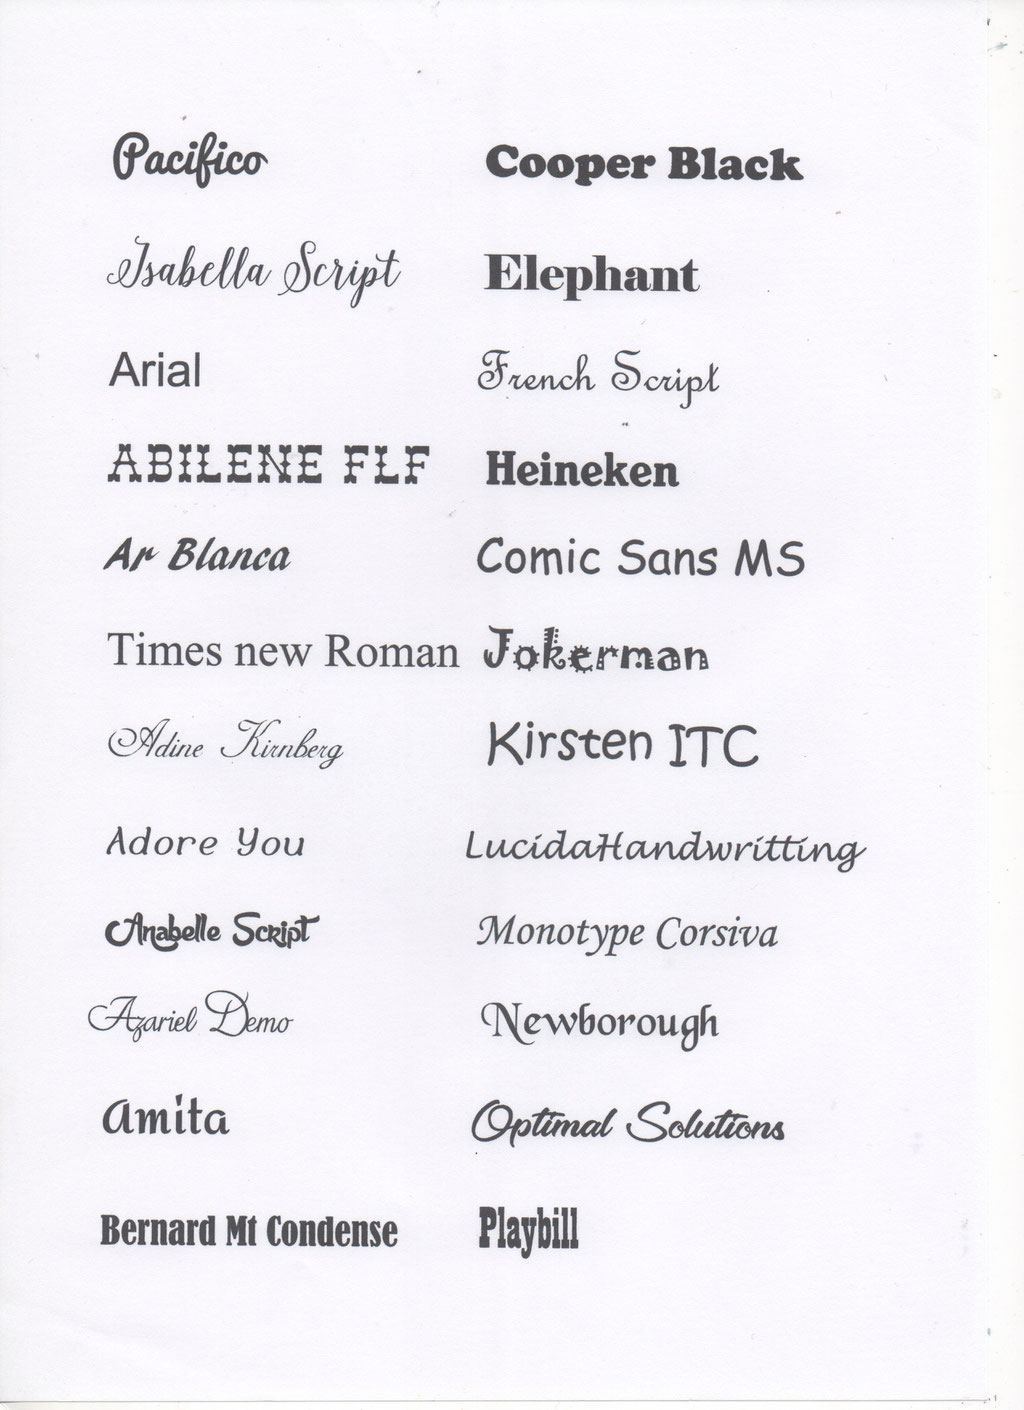 Pacifico
Cooper Black
Isabella Script
Elephant
Arial
French Script
ABILENE FLF
Heineken
Ar Blanca
Comic Sans MS
Times new Roman
Jokerman
Adine Kirnberg
Kirsten ITC
Adore You
LucidaHandwritting
Anabelle Script
Monotype Corsiva
Azariel Demo
Newborough
Amita
Optimal Solutions
Bernard Mt Condense
Playbill